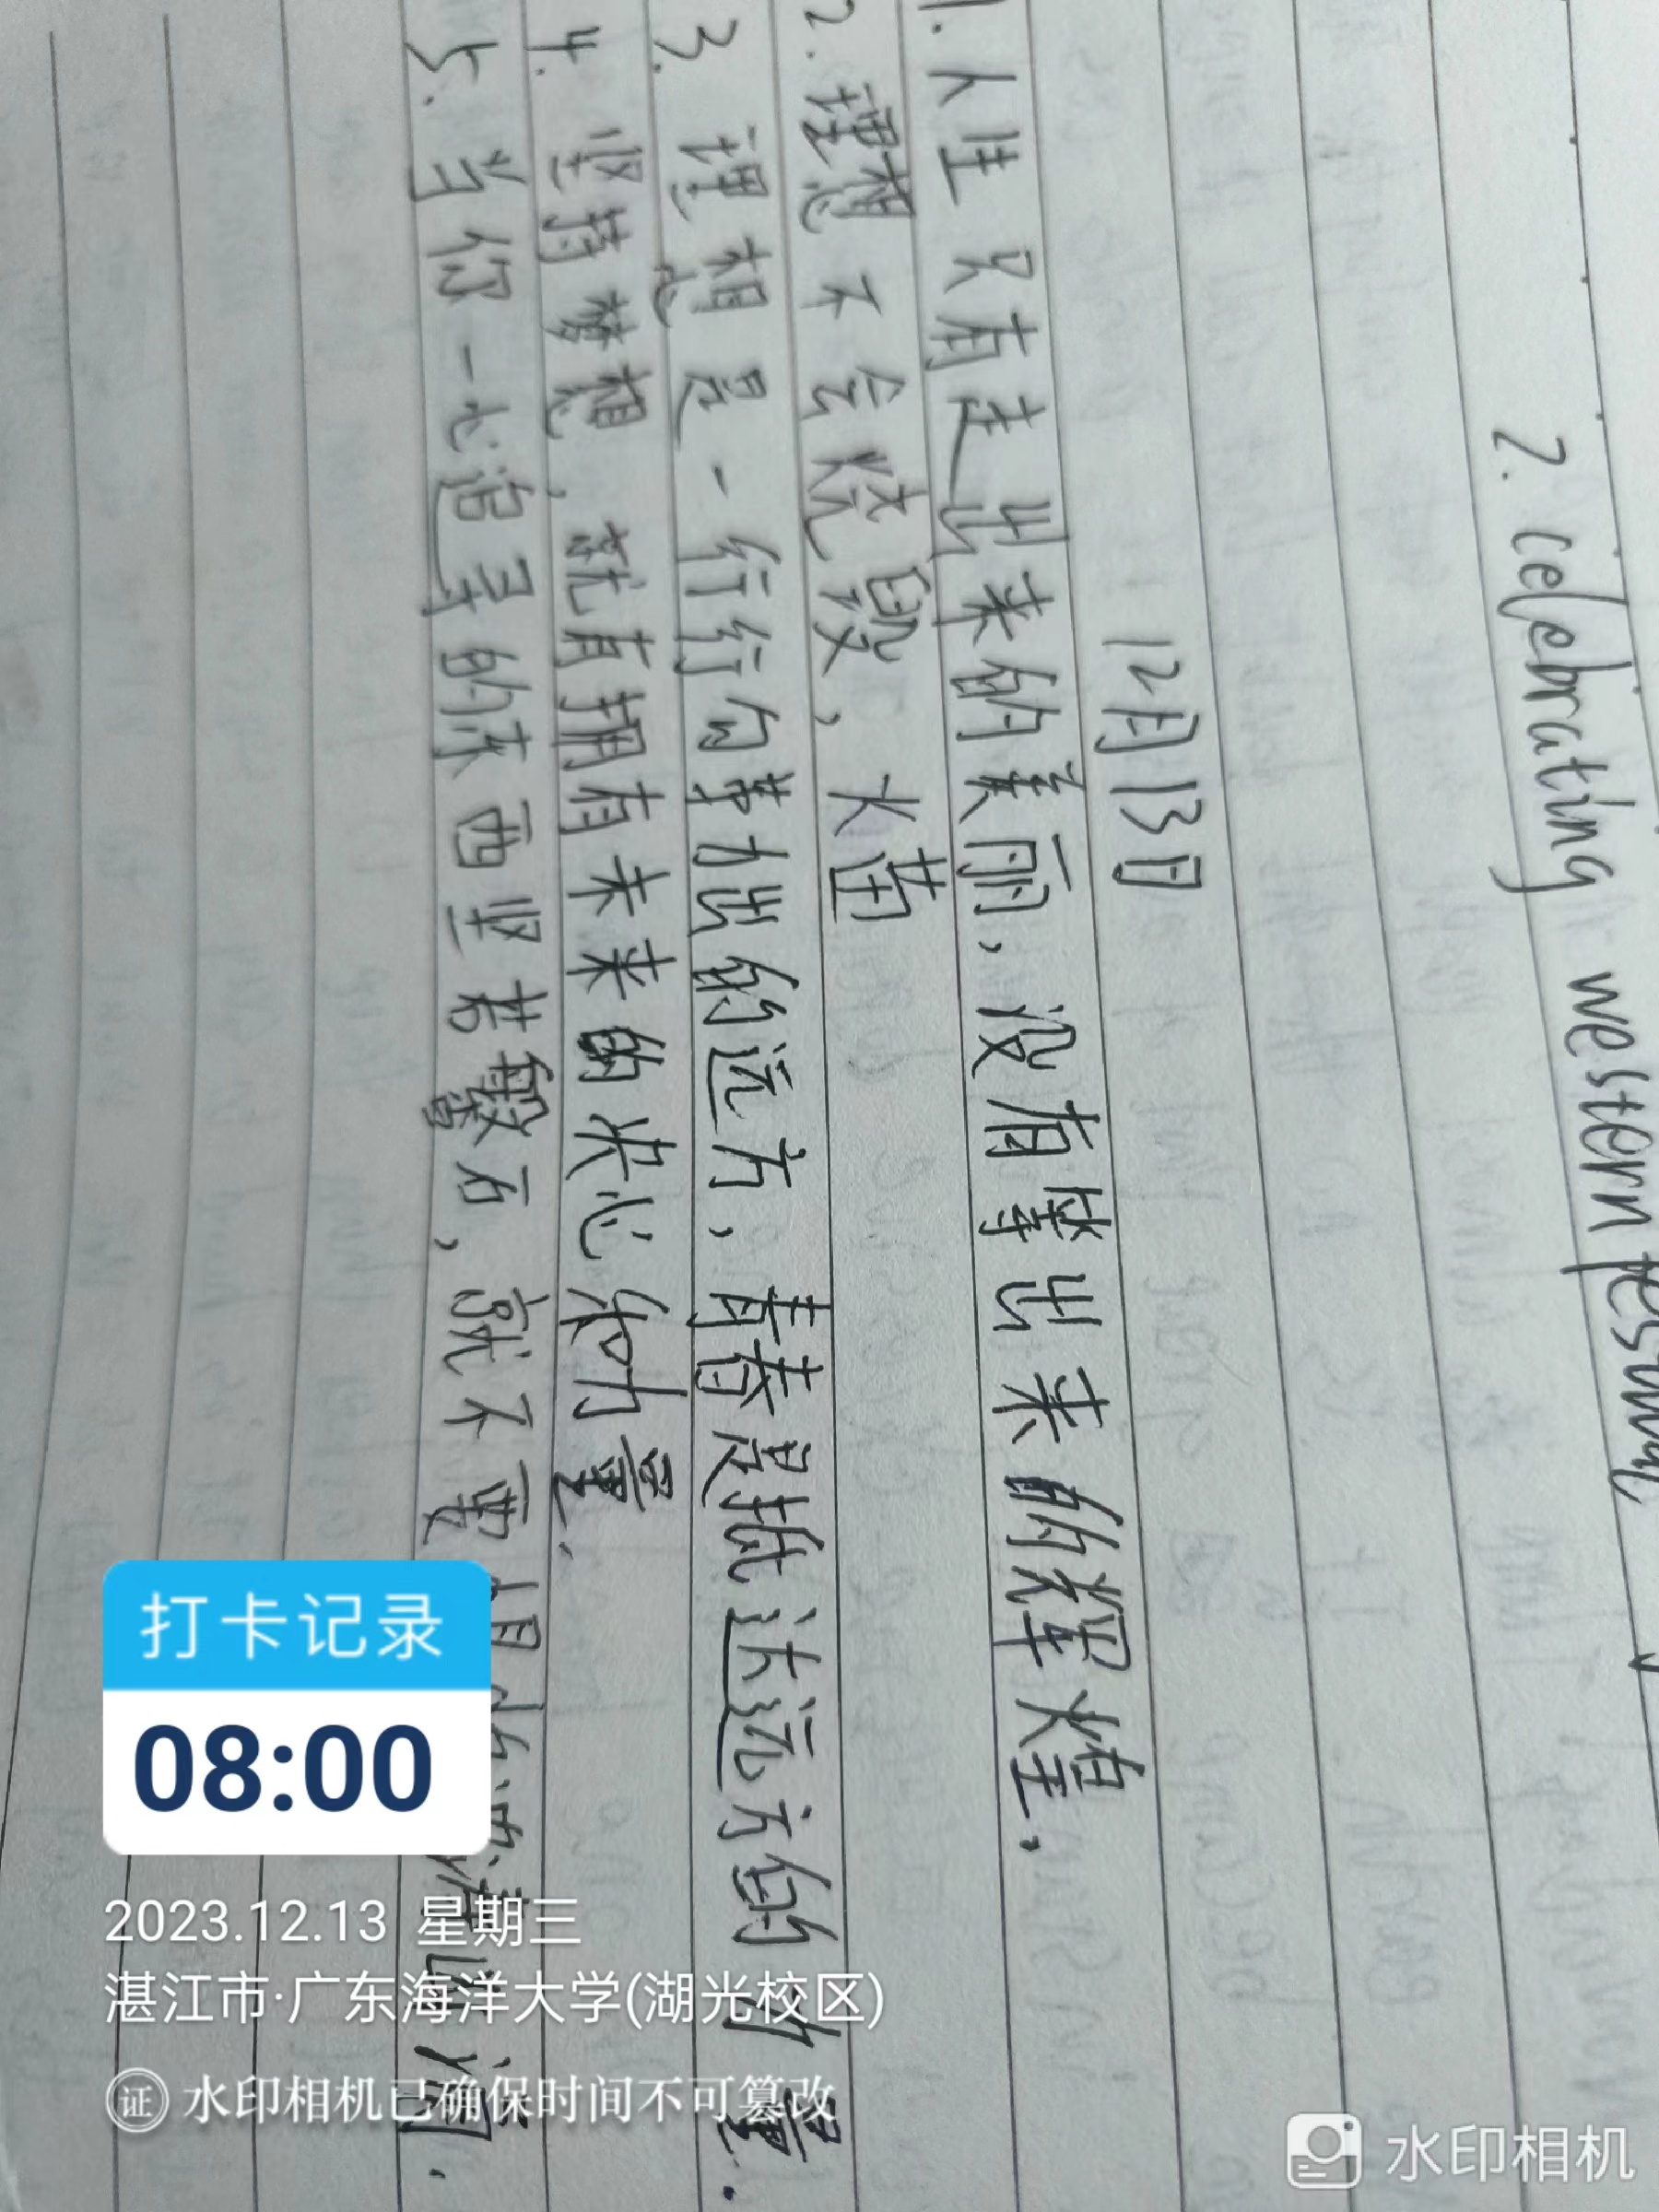 2. celebrating western
12月13日
1. 人生只有走出来的美丽，没有等出来的辉煌.
2. 理想不会烧毁，火苗
3. 理想是一行行自掌力出的远方，青春是抵达远方的力量.
4. 坚持梦想，就有拥有未来的决心和力量.
5. 当你一心追寻的东西坚若磐石，就不要
打卡记录
08:00
2023.12.13 星期三
湛江市·广东海洋大学(湖光校区)
证 水印相机已确保时间不可篡改
水印相机